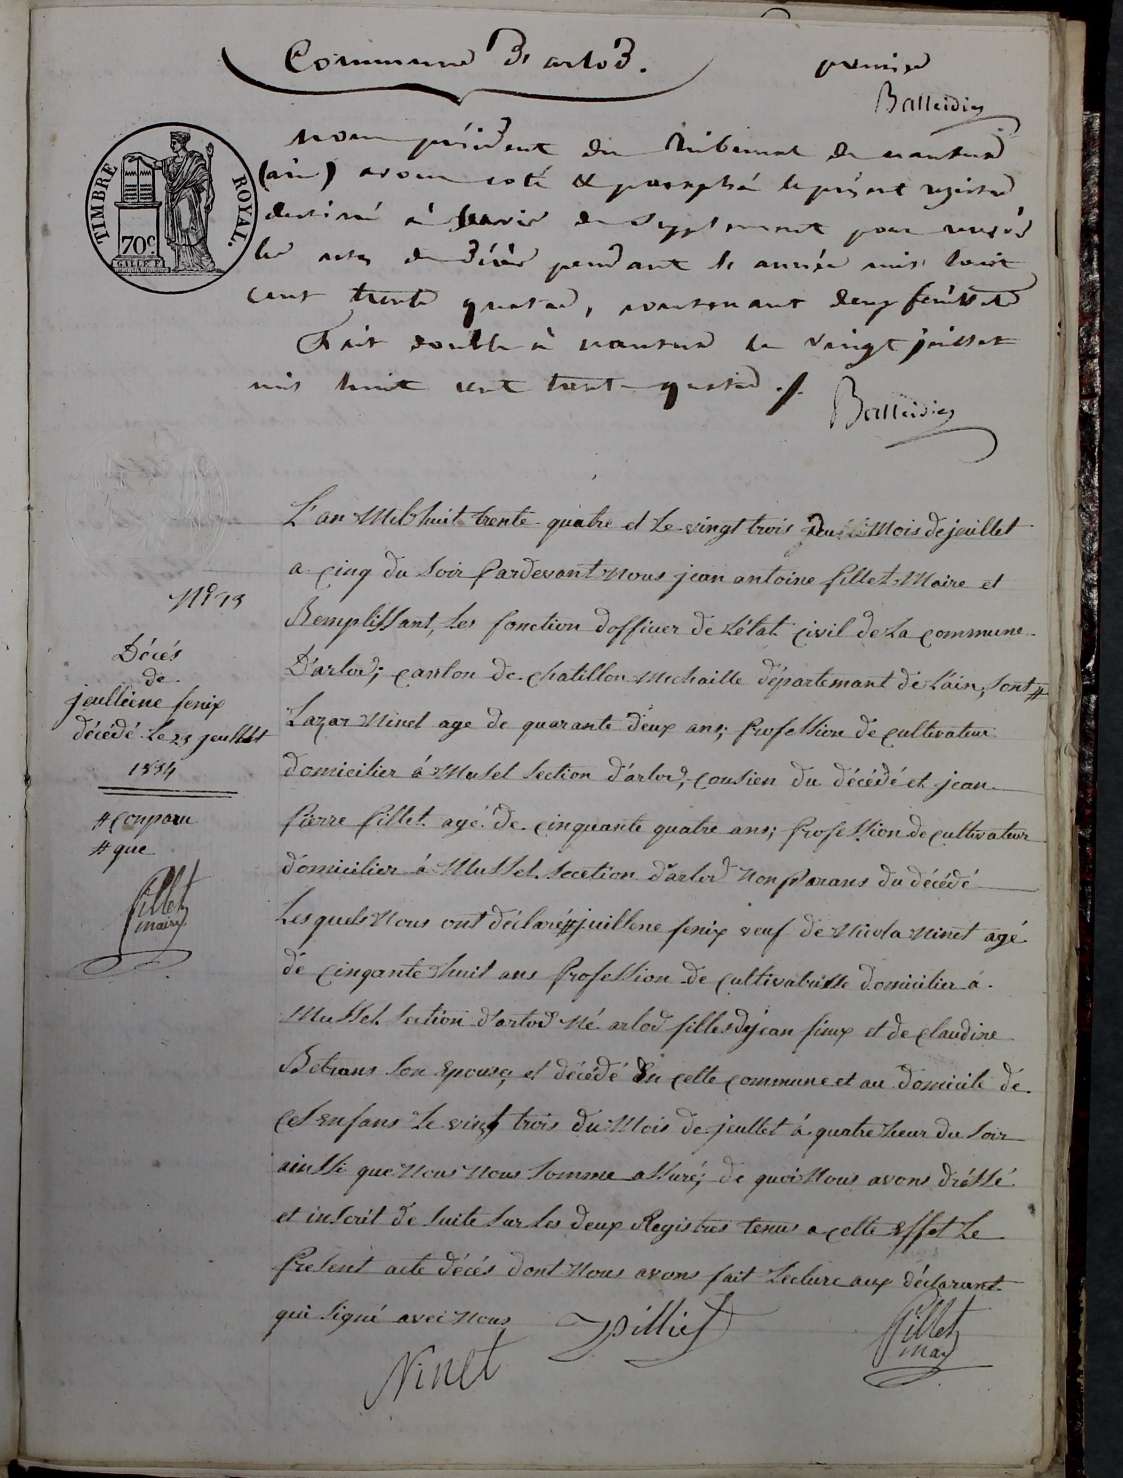 Commune d'arlod.
premier
Balleidier
TIMBRE ROYAL.
70c
Nous président du tribunal de nantua
(ain) avons coté & paraphé le présent registre
destiné à servir de supplément pour
les actes de décès pendant l'année mil huit
cent trente quatre, contenant deux feuillets
Fait double à nantua le vingt juillet
mil huit cent trente quatre ./.
Balleidier
L'an Mil huit trente quatre et le vingt trois du Mois de jeuillet
a cinq du Soir Pardevant Nous jean antoine fillet Maire et
Remplissant, les fonction dofficier de l'état civil de La commune
D'arlod; canton de chatillon Michaille département de L'ain, Sont #
Lazar Ninet age de quarante deux ans; Profession de cultivateur
domicilier á Musel Section d'arlod, cousien du décédé et jean
Pierre fillet agé de cinquante quatre ans; Profession de cultivateur
domicilier á Mussel Section d'arlod Non Parans du décédé
Lesquels Nous ont déclaré # juillene fenix veuf de Nicola Ninet agé
de cinqante huit ans Profession de cultivatrisse domicilier á
Mussel Section d'arlod Né arlod filles de jean finix et de claudine
Betrans Son Epouse, et décédé En cette commune et au domicile de
Ces Enfans Le vingt trois du Mois de jeullet á quatre heur du Soir
ainssi que Nous Nous Somme assuré; de quoi Nous avons dréssé
et inscrit de Suite Sur Les deux Registres tenus a cette Effet Le
Present acte décés dont Nous avons fait Lecture aux déclarant
qui Signé avec Nous
Fillet
maire
Ninet
N° 13
Décés
de
jeulleine fenix
décédé Le 23 jeuillet
1834
# conparu
# que
Fillet
maire